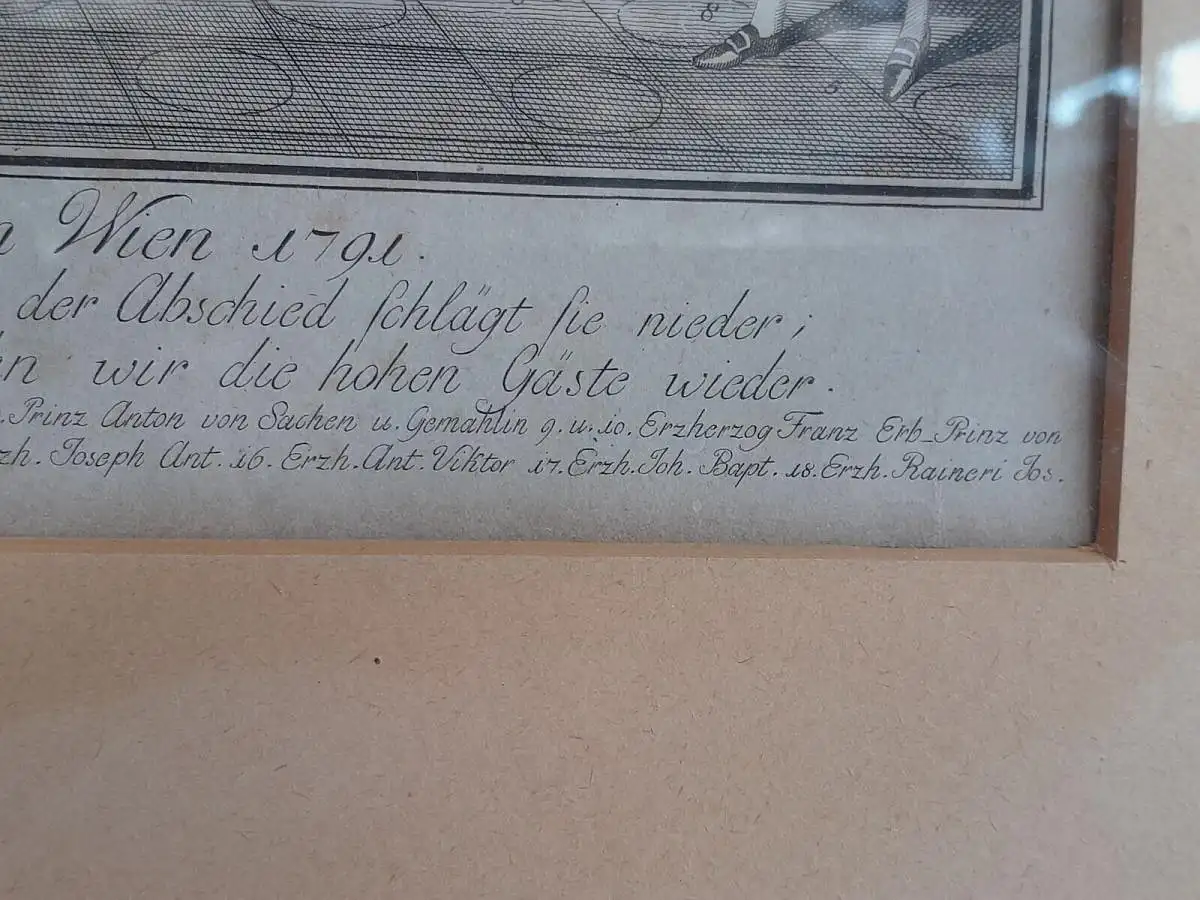 8
5
n Wien 1791.
der Abschied ſchlägt ſie nieder;
en wir die hohen Gäste wieder.
. Prinz Anton von Sachen u. Gemahlin 9. u. 10. Erzherzog Franz Erb-Prinz von
zh. Joseph Ant. 16. Erzh. Ant. Viktor 17. Erzh. Joh. Bapt. 18. Erzh. Raineri Jos.